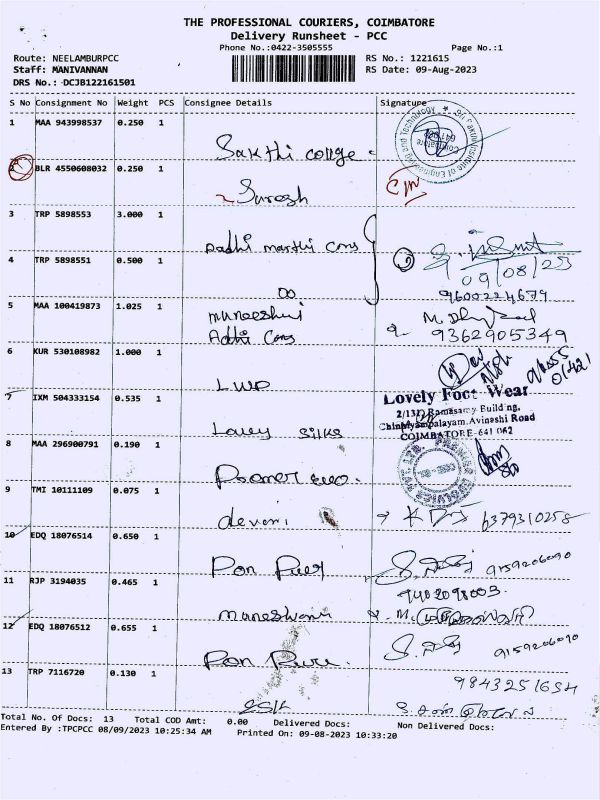 THE PROFESSIONAL COURIERS, COIMBATORE
Delivery Runsheet - PCC
Phone No.:0422-3505555 Page No.:1
Route: NEELAMBURPCC RS No.: 1221615
Staff: MANIVANNAN RS Date: 09-Aug-2023
DRS No.: DCJB122161501
S No Consignment No Weight PCS Consignee Details Signature
1 MAA 943998537 0.250 1
Sakthi college
2 BLR 4550608032 0.250 1
Suresh
3 TRP 5898553 3.000 1
4 TRP 5898551 0.500 1
09/08/23
9600224679
5 MAA 100419873 1.025 1
Adhi Cons 9362905349
6 KUR 530108982 1.000 1
LWD
7 IXM 504333154 0.535 1
Lovely Foot Wear
2/132, Ramasamy Building,
Chinniyampalayam, Avinashi Road
COIMBATORE-641 062
silks
8 MAA 296900791 0.190 1
9 TMI 10111109 0.075 1
devani 6379310258
10 EDQ 18076514 0.650 1
Pon Pure 9159206090
11 RJP 3194035 0.465 1
9402098003
12 EDQ 18076512 0.655 1
Pon Pure 9159206090
13 TRP 7116720 0.130 1
9843251634
Total No. Of Docs: 13 Total COD Amt: 0.00 Delivered Docs: Non Delivered Docs:
Entered By :TPCPCC 08/09/2023 10:25:34 AM Printed On: 09-08-2023 10:33:20